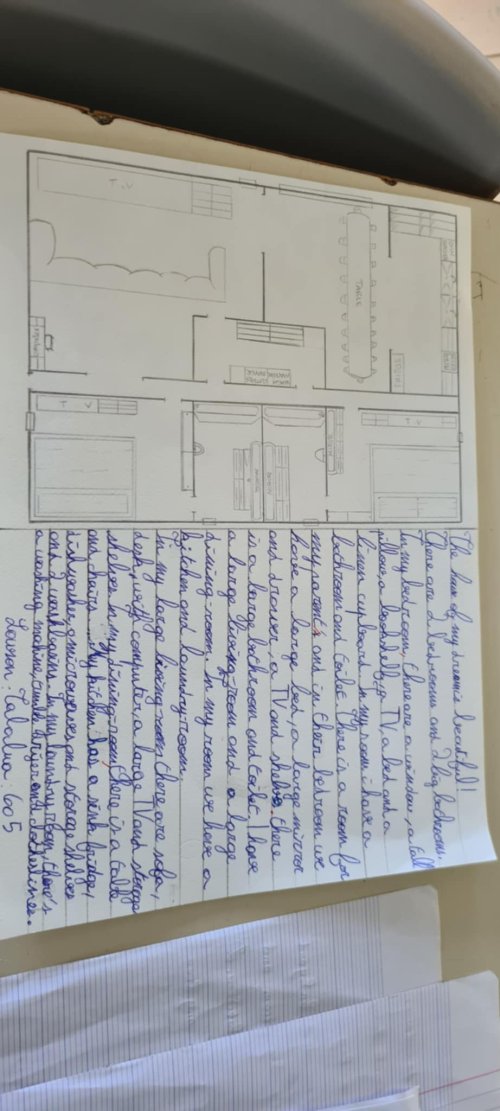 T.V
TABLE
T V
T V
The house of my dream is beautiful!
There are 2 bedrooms and 2 big bedroom.
In my bedroom, there are a window, a tall
pillow, a bookshelf, a TV, a bed and a
linen cupboard. In my room i have a
bathroom and toilet. There is a room for
my parents and in their bedroom we
have a large bed, a large mirror
and drawer, a TV and shelves. there
is a large bathroom and toilet. I have
a large living-room and a large
dining-room. In my room we have a
kitchen and laundry-room.
In my large living-room there are sofa,
desk, with computer, a large TV and storage
shelves. In my dining-room there is a table
and chairs. My kitchen has a sink, fridge,
dishwasher, a microwave, and storage shelves
and 2 washbasins. In my laundry room, there's
a washing machine, tumble dryer and clothesline.
605